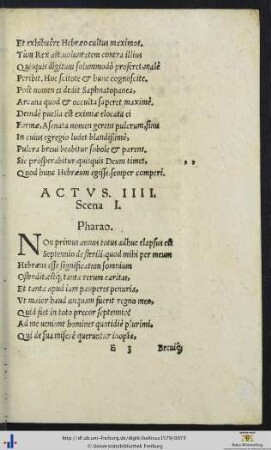 Et exhibuêre Hebræo cultus maximos.
Tùm Rex ait: uoluntatem contra illius
Quisquis digitum solummodò proferet, malè
Peribit. Huc scitote & hunc cognoscite.
Post nomen ei dedit Saphnatopanea,
Arcana quod & occulta saperet maximè.
Deindè puella est eximiæ elocata ei
Formæ, Asenata nomen gerens pulcerrimum
In cuius egregio ludet blandissimè,
Pulcra breui beabitur sobole & parens.
Sic prosperabitur, quisquis Deum timet.
Quod hunc Hebræum egisse semper comperi.
ACTVS. IIII.
Scena I.
Pharao.
NOn primus annus totus adhuc elapsus est
Septennio de sterili, quod mihi per meum
Hebræus esse significatum somnium
Ostendit, estq́; tanta rerum caritas,
Et tanta apud iam pauperes penuria,
Vt maior haud unquam fuerit regno meo,
Quid fiet in toto precor septennio?
Ad me ueniunt homines quotidiè plurimi,
Qui de sua miserè queruntur inopia.
E 3
Breuiq́;
http://dl.ub.uni-freiburg.de/diglit/balticus1579/0073
© Universitätsbibliothek Freiburg
Baden-Württemberg